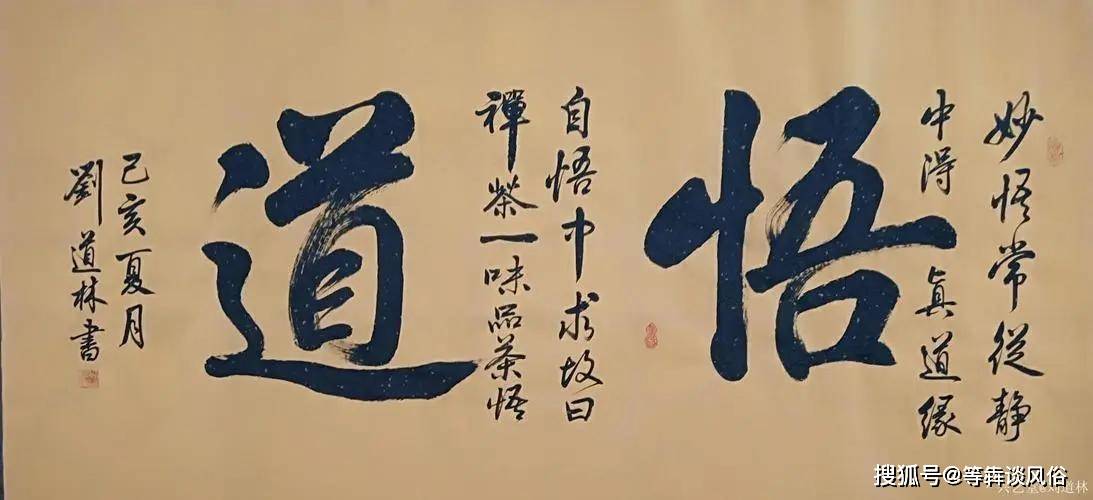 妙悟常從靜
中得真道緣
悟
自悟中求故曰
禪茶一味品茶悟
道
己亥夏月
劉道林書
搜狐号@等犇谈风俗